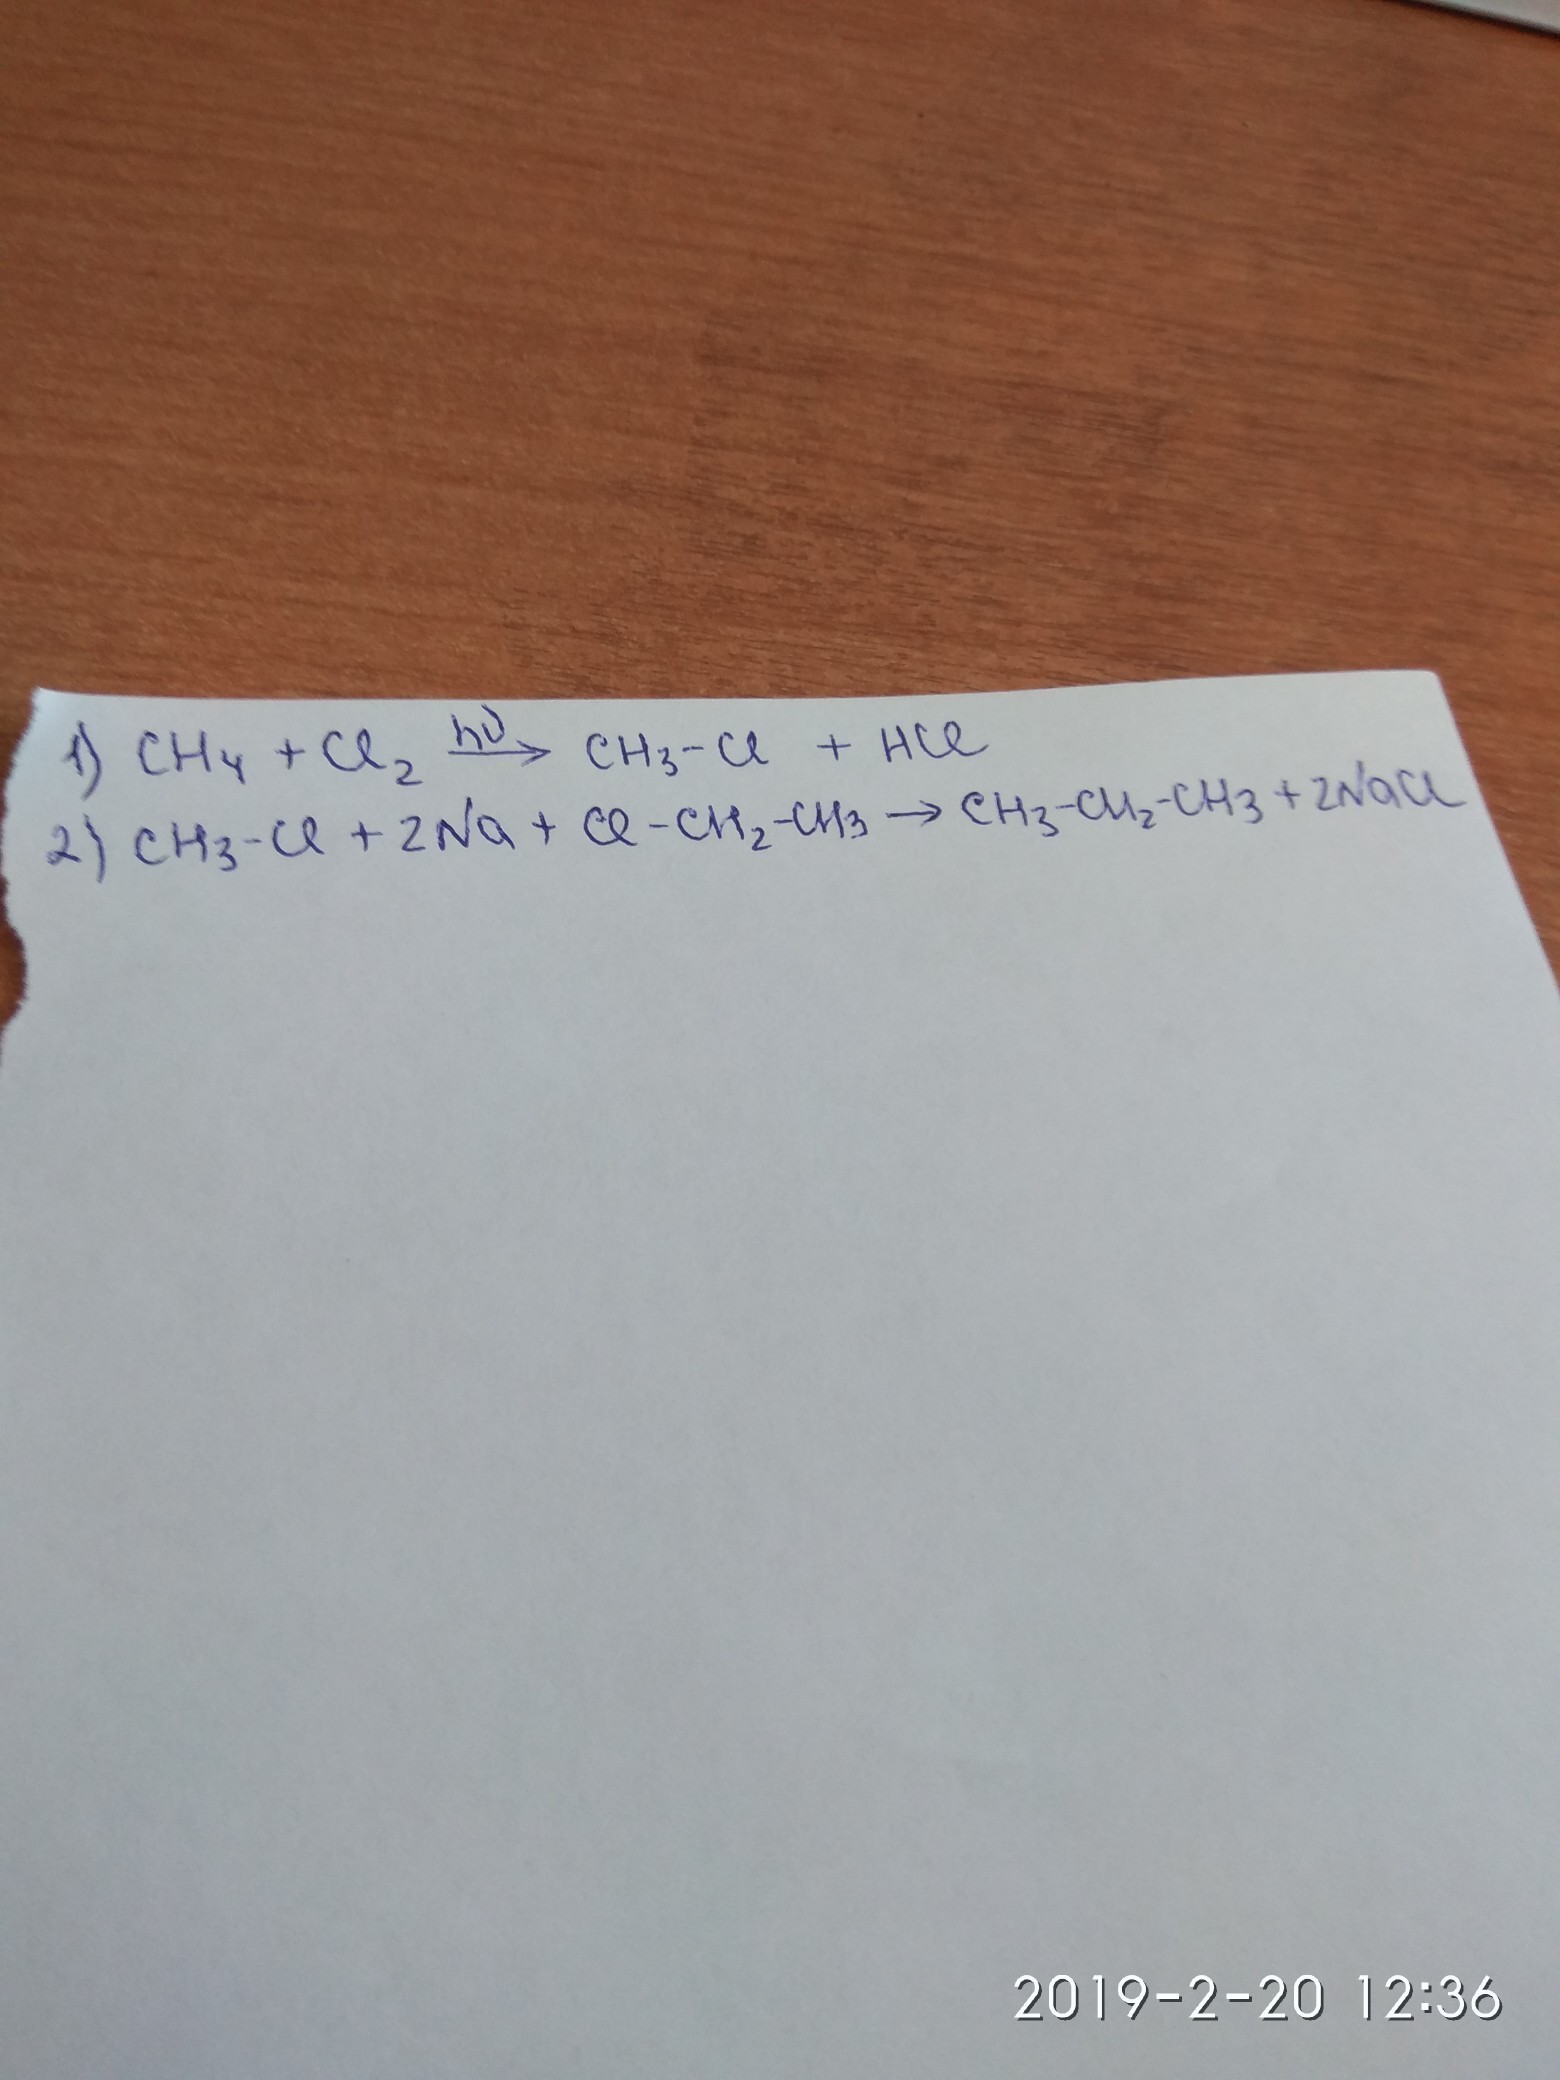 1) CH₄ + Cl₂ hν→ CH₃-Cl + HCl
2) CH₃-Cl + 2Na + Cl-CH₂-CH₃ → CH₃-CH₂-CH₃ + 2NaCl
2019-2-20 12:36